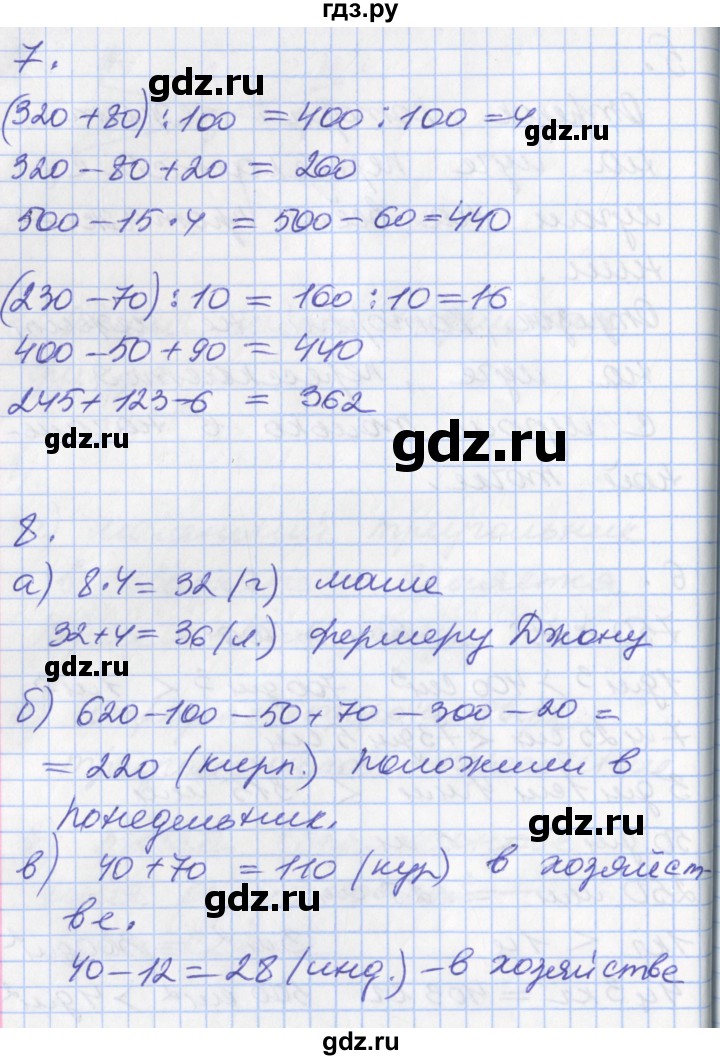 гдз.ру
7.
gdz.ru
(320 + 80) : 100 = 400 : 100 = 4
gdz.ru
320 - 80 + 20 = 260
500 - 15 · 4 = 500 - 60 = 440
(230 - 70) : 10 = 160 : 10 = 16
400 - 50 + 90 = 440
245 + 123 - 6 = 362
gdz.ru
gdz.ru
8.
а) 8 · 4 = 32 (г) маше
32 + 4 = 36 (л.) фермеру Джону
gdz.ru
б) 620 - 100 - 50 + 70 - 300 - 20 =
= 220 (кирп.) положили в
понедельник.
gdz.ru
в) 40 + 70 = 110 (кур) в хозяйст-
gdz.ru
ве.
40 - 12 = 28 (инд.) - в хозяйстве
gdz.ru